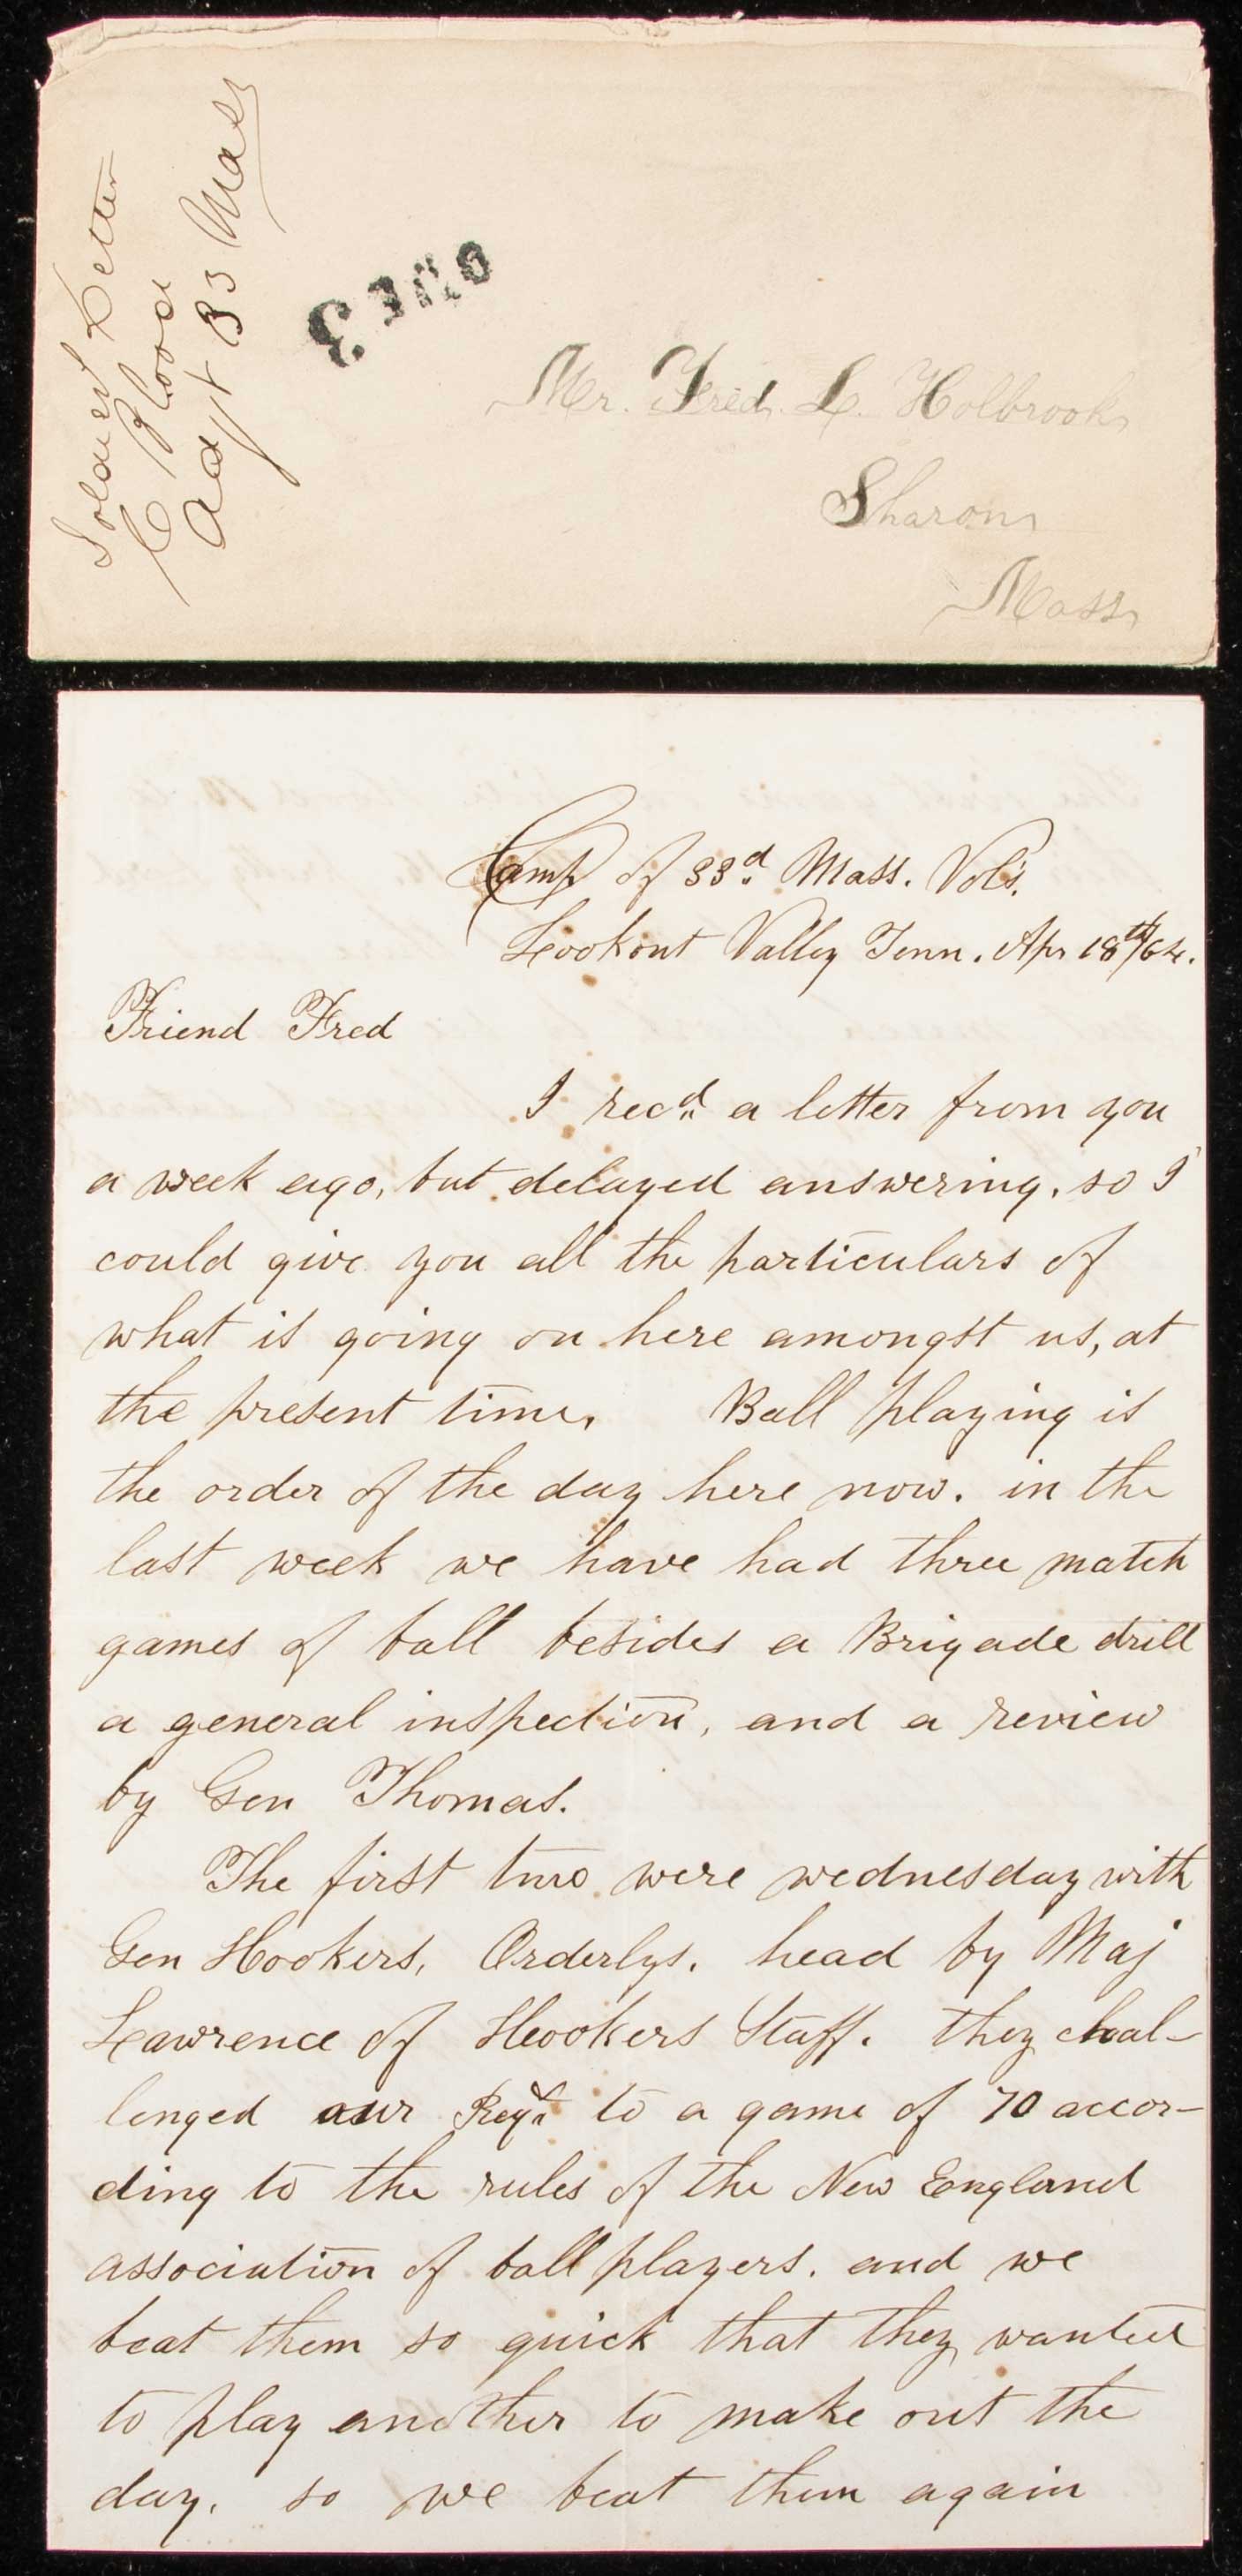 Soldiers Letter
C Blood
Adjt 33 Mass
DUE 3
Mr. Fred. L. Holbrook
Sharon
Mass
Camp of 33d Mass. Vol's.
Lookout Valley Tenn. Apr 18th/64.
Friend Fred
I recd a letter from you
a week ago, but delayed answering, so I
could give you all the particulars of
what is going on here amongst us, at
the present time. Ball playing is
the order of the day here now. in the
last week we have had three match
games of ball besides a Brigade drill
a general inspection, and a review
by Gen Thomas.
The first two were wednesday with
Gen Hookers, Orderlys. head by Maj
Lawrence of Hookers Staff. they chal-
lenged our Regt to a game of 70 accor-
ding to the rules of the New England
association of ball players. and we
beat them so quick that they wanted
to play another to make out the
day. so we beat them again